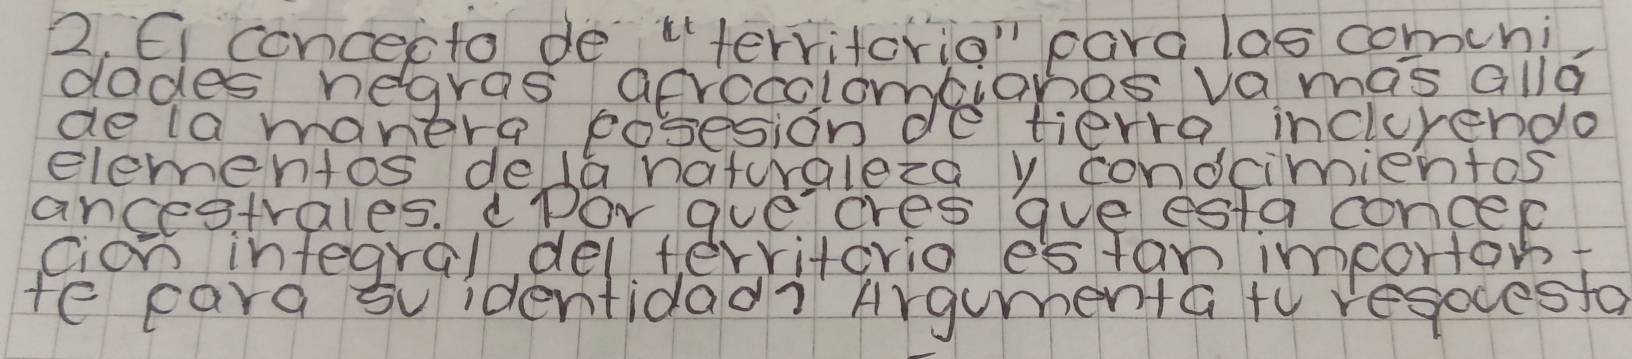 2. El concepto de "territorio" para las comuni
dades negras afrocolombianas va más allá
de la manera posesión de tierra incluyendo
elementos de la naturaleza y conocimientos
ancestrales. ¿Por qué cres que esta concep
ción integral del territorio es tan importan-
te para su identidad? Argumenta tu respuesta